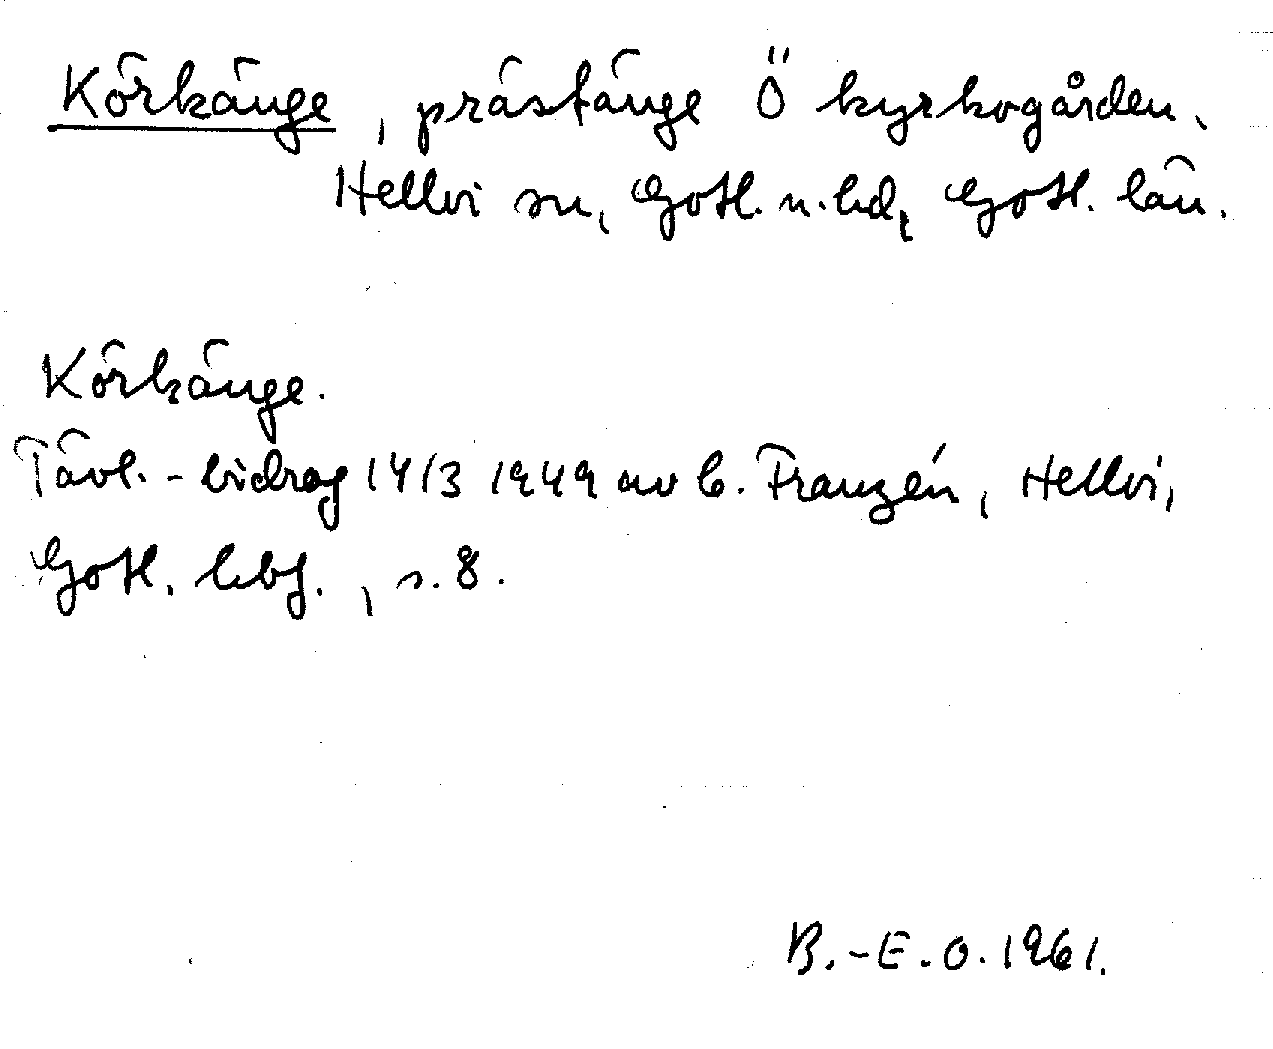 Körkänge, prästänge Ö kyrkogården,
Hellvi sn, Gotl. n. hd, Gotl. län.
Körkänge.
Tävl.-bidrag 14/3 1949 av C. Franzén, Hellvi,
Gotl. , s. 8.
B.-E.O. 1961.